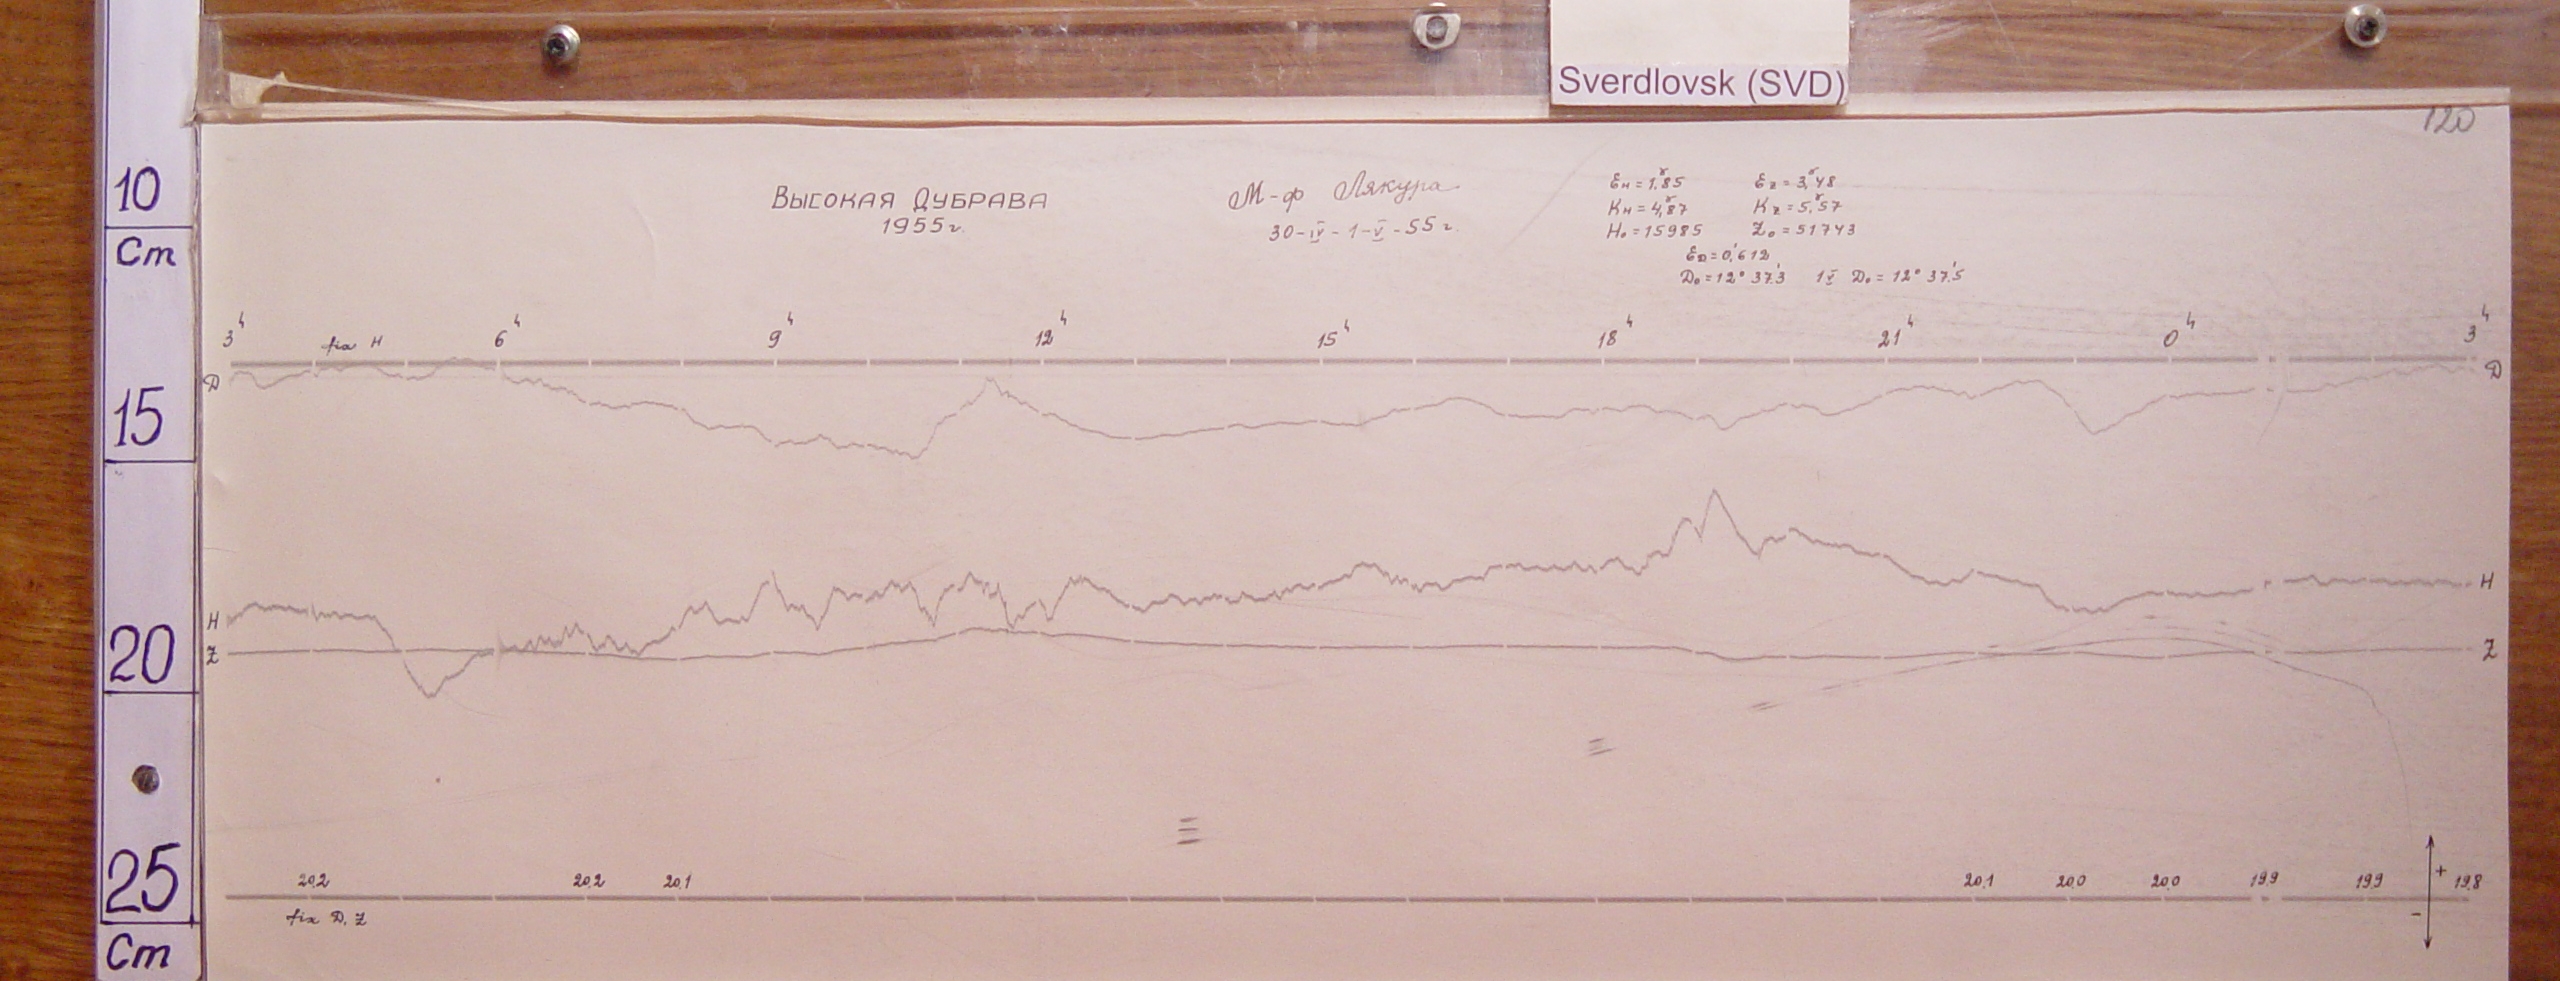 Sverdlovsk (SVD)
120
10
Cm
15
20
25
Cm
Высокая Дубрава
1955г.
М-ф Лякура
30-IV-1-V-55г.
Eн=1,ˠ85 Ez=3,ˠ48
Kн=4,ˠ87 Kz=5,ˠ57
H₀=15985 Z₀=51743
ED=0,′612
D₀=12° 37,′3 1V D₀=12° 37,′5
3ʰ 6ʰ 9ʰ 12ʰ 15ʰ 18ʰ 21ʰ 0ʰ 3ʰ
fix H
D D
H H
Z Z
20,2 20,2 20,1 20,1 20,0 20,0 19,9 19,9 19,8
+
-
fix D, Z